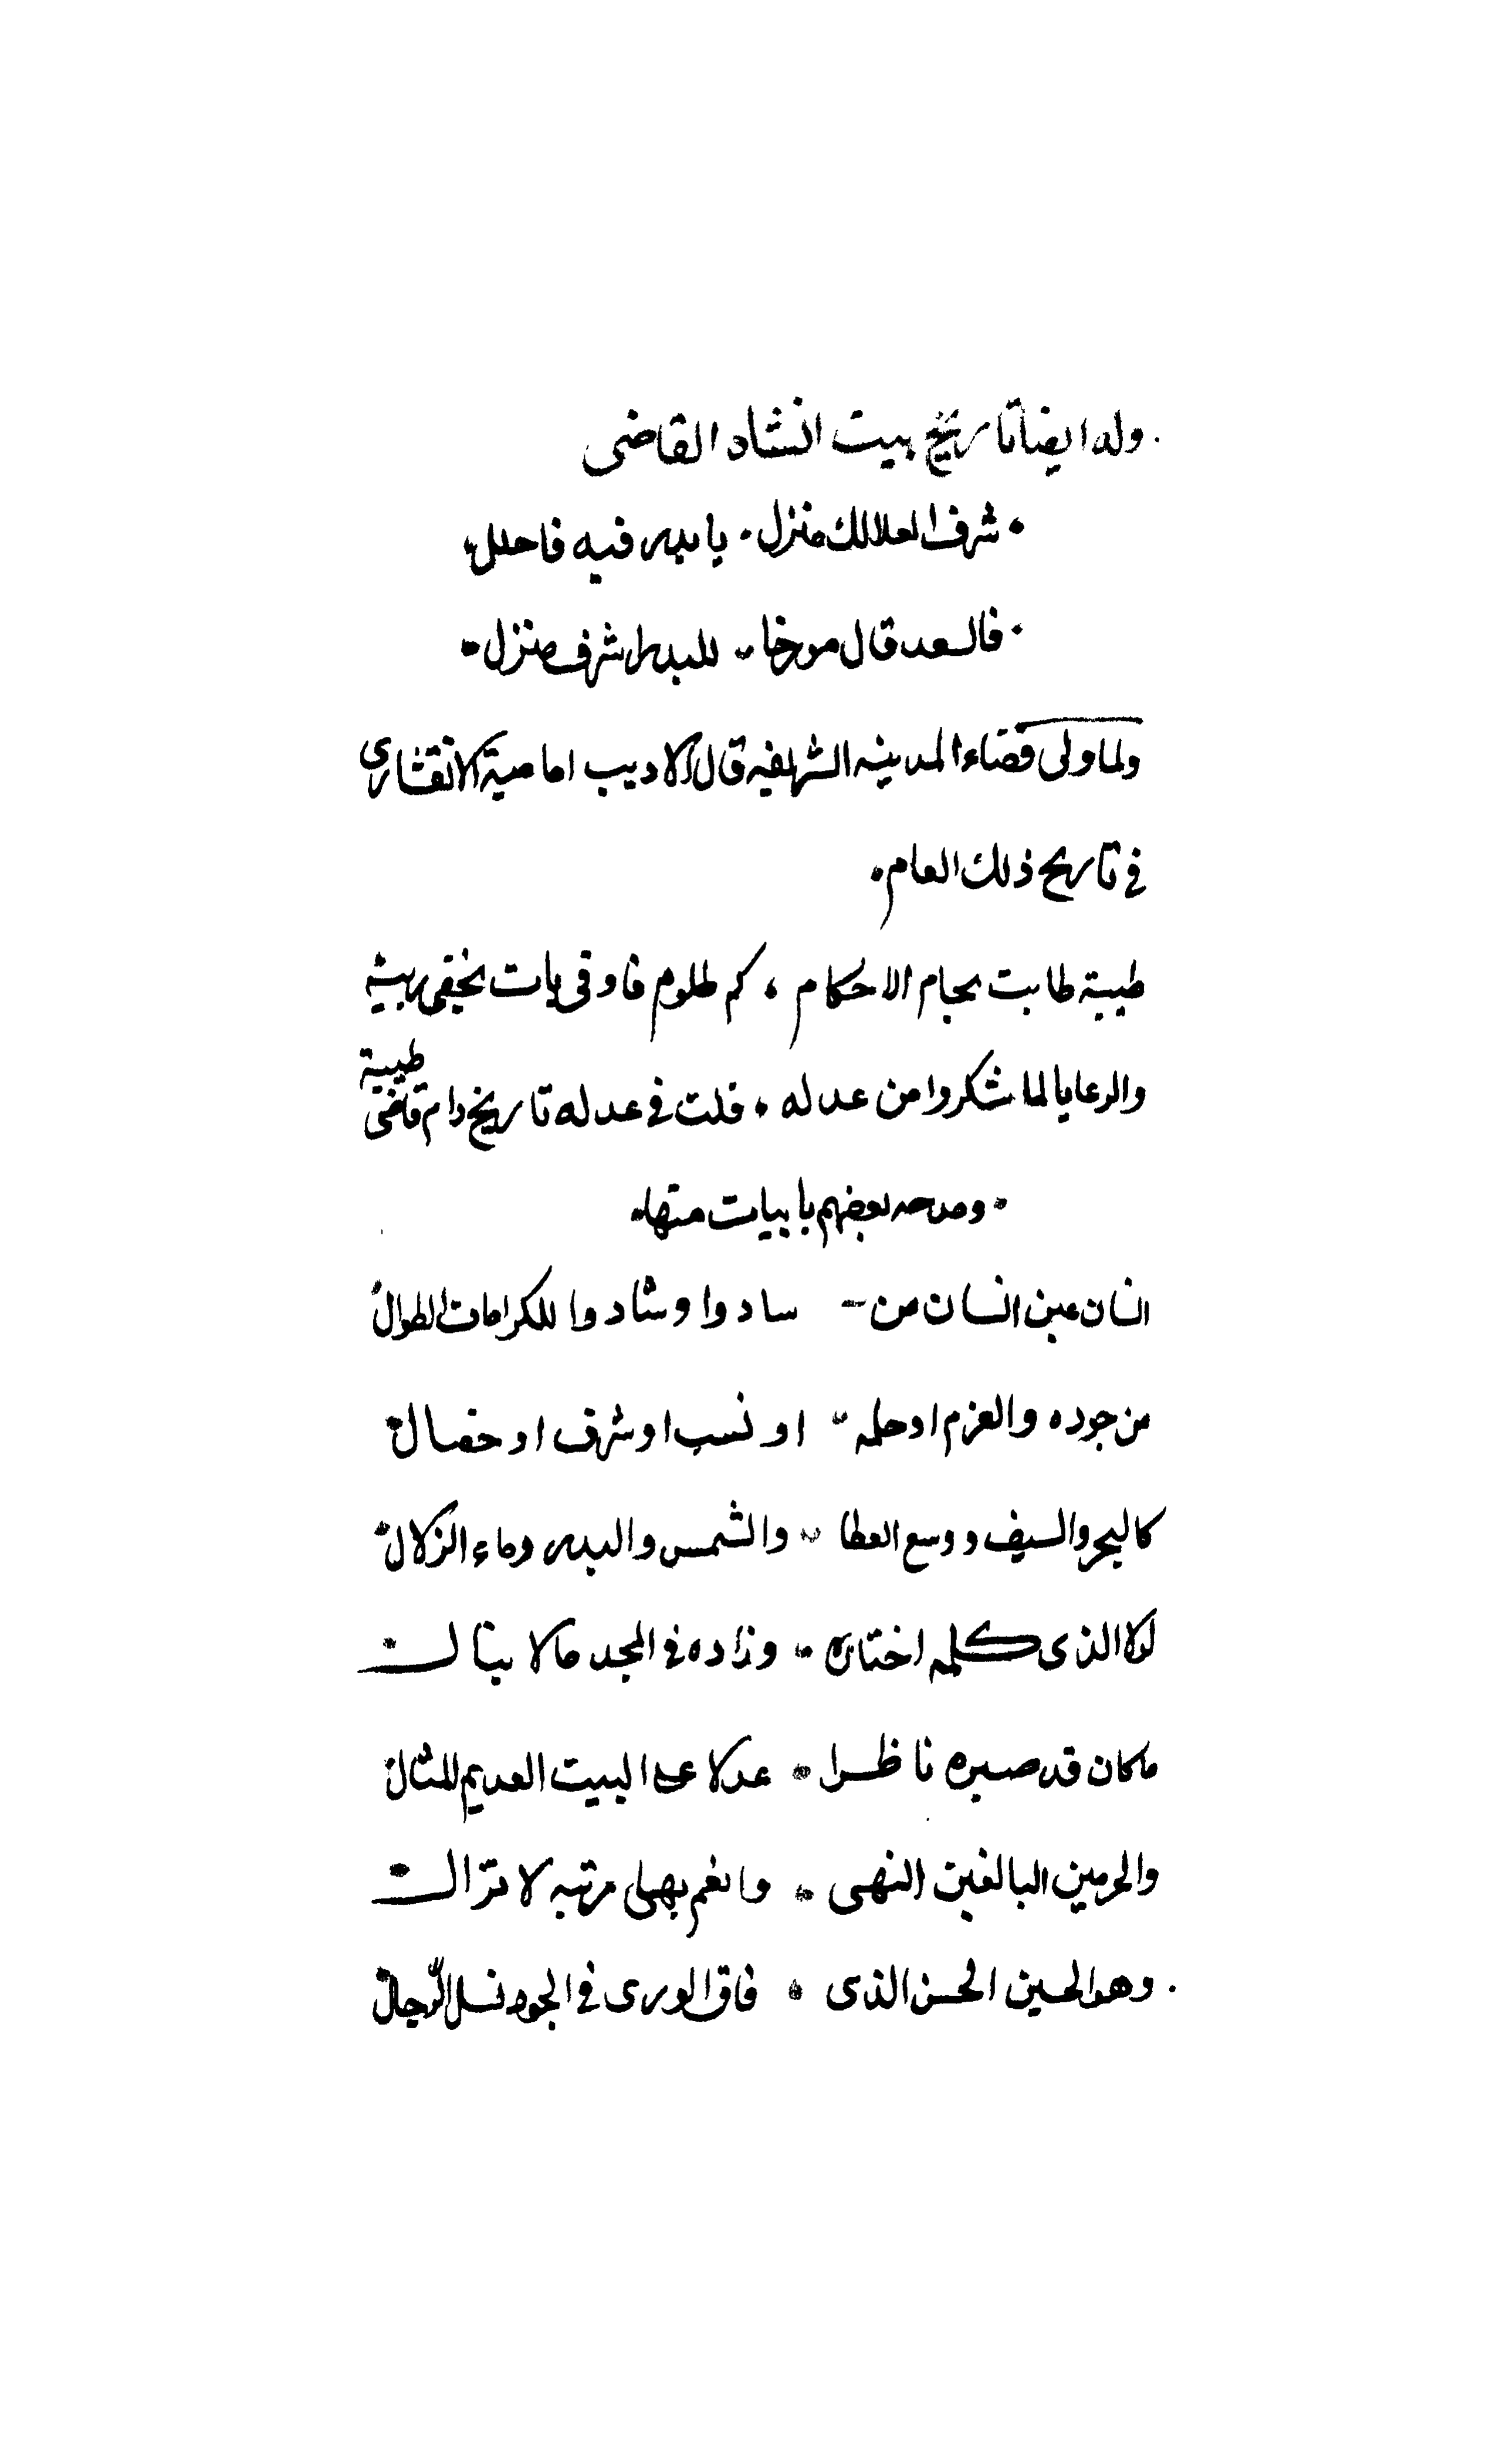 وله ايضا تاريخ بيت انشاد القاضى
شرف العلا لك منزل . يا بدر فيه فاحلل
فالسعد قال مورخا . للبدر شرف منزل
ولما ولى قضاء المدينه الشريفه قال الاديب اما مية الانقشارى
فى تاريخ ذلك العام .
طيبة طابت بحام الاحكام ، كم ظلوم بات يخفى ريبته
والرعايا لما شكروا من عدله . قلت فى عدله تاريخ دام قاضى طيبة
. ومدحه بعضهم بابيات منها .
انسان عين انسان من - سادوا وشادوا للكرامات الطوال
من جوده والعزم او حلمه " او نسب او شرف او خصال
كالبحر والسيف ووسع العطا " والشمس والبدر وماء الزلال
لولا الذى كلهم اختاره . وزاده فى المجد مالا ينال
ماكان قد صيره ناظرا . عدلا على البيت العديم المثال
والحرمين البالغين النهى . وانعم بهلى مرتبه لا تزال
. وهو الحسين الحسن الذى . فاق الورى فى الجود نسل الرجال